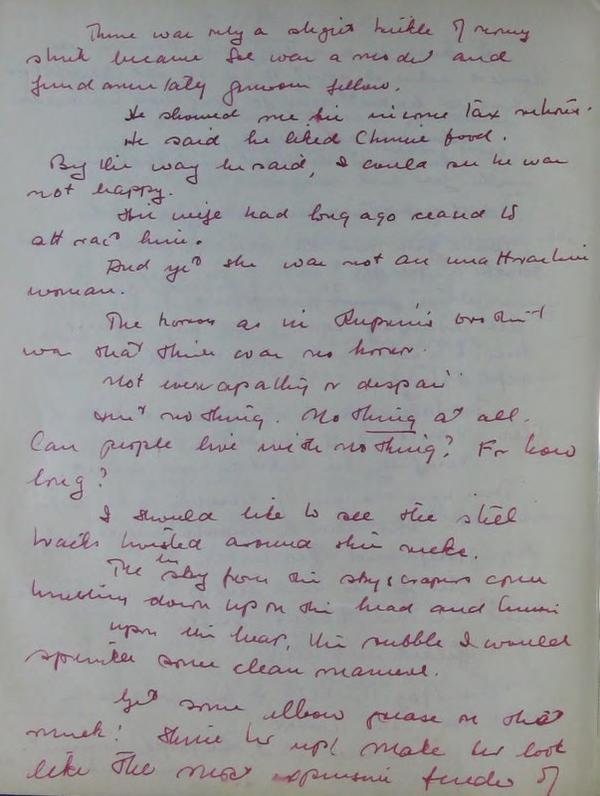 There was only a slight trickle of money
stuck because Joe was a modest and
fundamentally generous fellow.
He showed me his income tax returns.
He said he liked Chinese food.
By the way he said, I could see he was
not happy.
His wife had long ago ceased to
attract him.
And yet she was not an unattractive
woman.
The horror as in Kuprin's brothel
was that there was no horror.
Not even apathy or despair
Just nothing. Nothing at all.
Can people live with nothing? For how
long?
I should like to see the steel
tracks twisted around their necks.
The sky from the skyscrapers come
tumbling down upon the head and
upon the heap, the rubble I would
sprinkle some clean manure.
Get some elbow grease on that
muck! Shine her up! Make her look
like the most expensive fender of